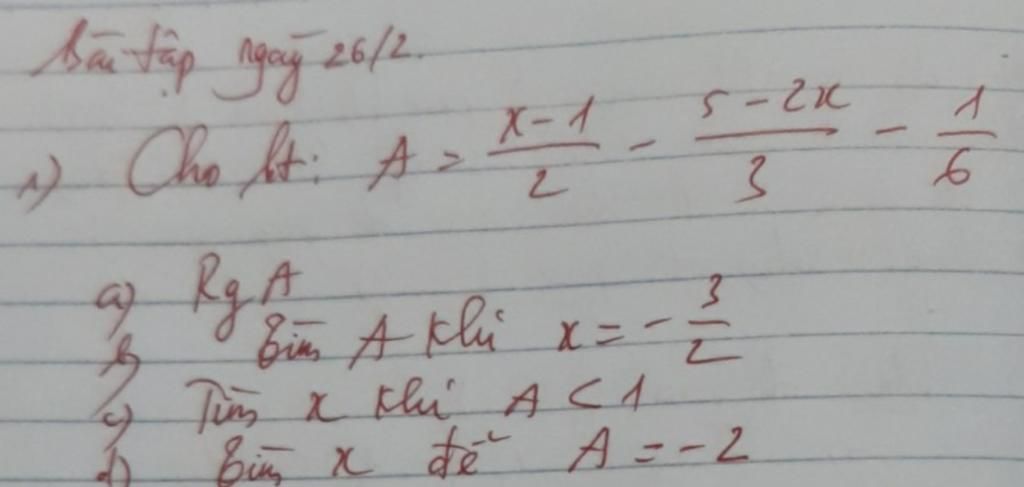 Bài tập ngày 26/2.
1) Cho bt: A = \frac{x-1}{2} - \frac{5-2x}{3} - \frac{1}{6}
a) Rg A
b) Tìm A khi x = -\frac{3}{2}
c) Tìm x khi A < 1
d) Tìm x để A = -2